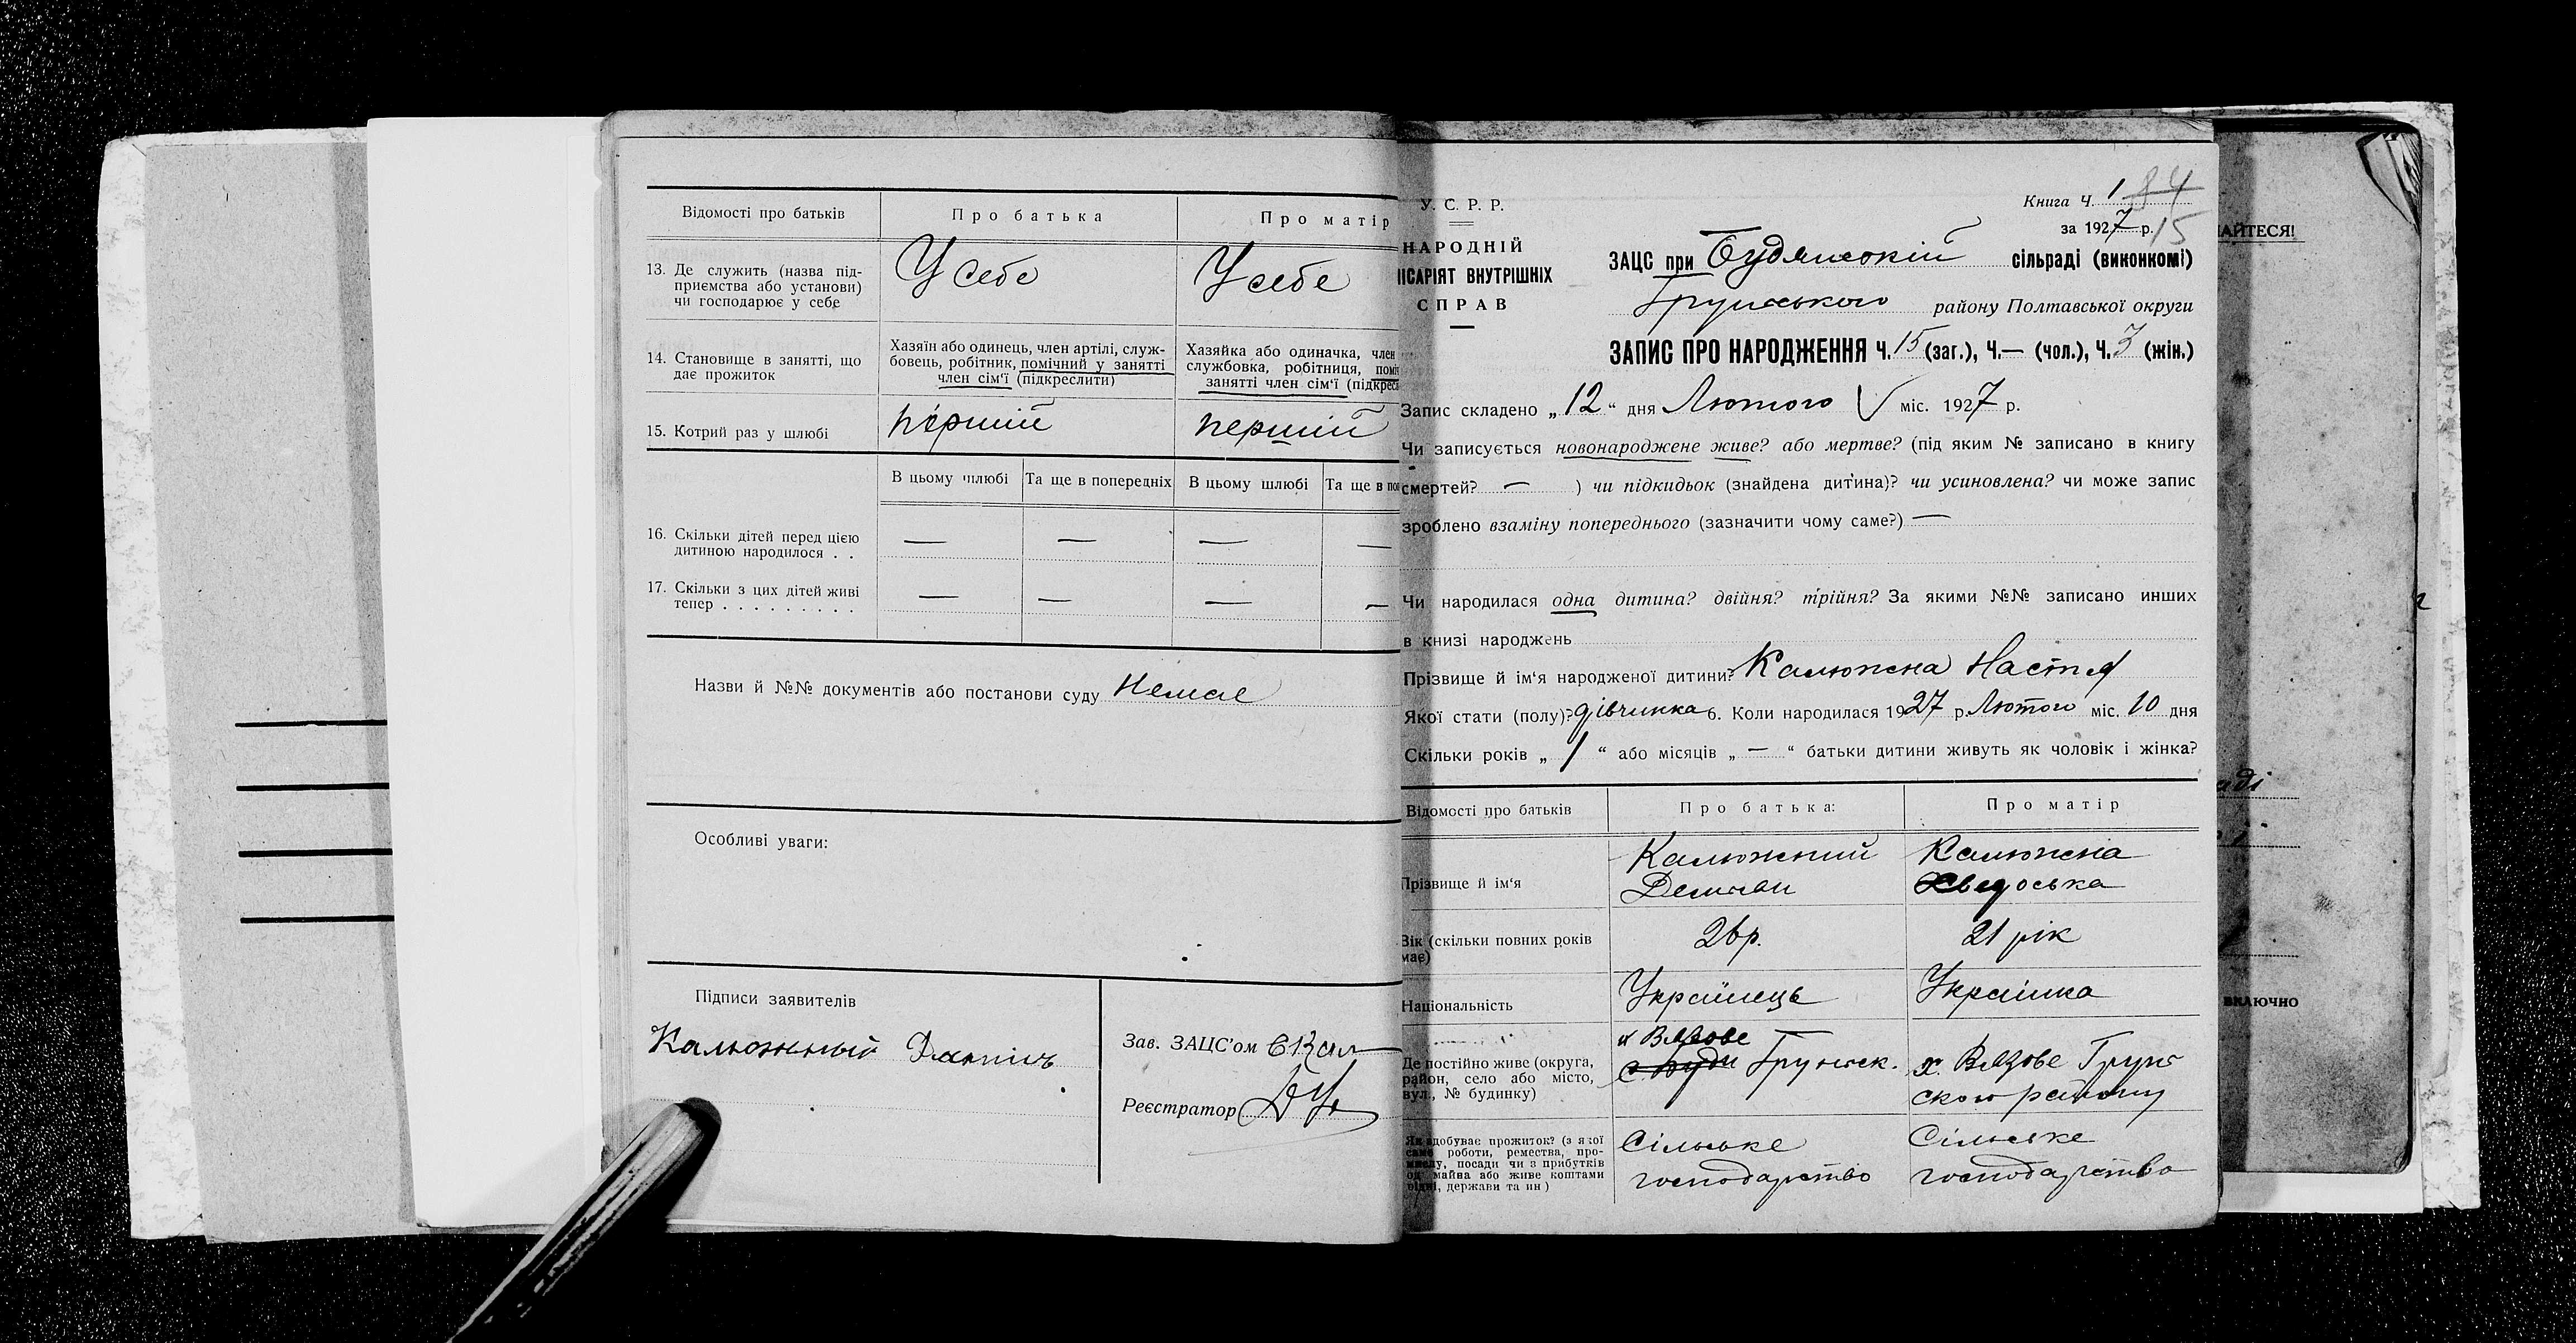 Відомості про батьків
Про батька
Про матір
13. Де служить (назва під-
приємства або установи)
чи господарює у себе
У себе
У себе
14. Становище в занятті, що
дає прожиток
Хазяїн або одинець, член артілі, служ-
бовець, робітник, помічний у занятті
член сім'ї (підкреслити)
Хазяйка або одиначка, член
службовка, робітниця, помі
занятті член сім'ї (підкрес
15. Котрий раз у шлюбі
перший
перший
В цьому шлюбі
Та ще в попередніх
В цьому шлюбі
Та ще в по
16. Скільки дітей перед цією
дитиною народилося . .
— — — —
17. Скільки з цих дітей живі
тепер . . . . . . . . .
— — — —
Назви й №№ документів або постанови суду Немає
Особливі уваги:
Підписи заявителів
Калюжный
Зав. ЗАЦС'ом
Реєстратор
У. С. Р. Р.
НАРОДНІЙ
ІСАРІЯТ ВНУТРІШНІХ
СПРАВ
Книга Ч. 1 84
за 1927 р. 15
ЗАЦС при Будянській сільраді (виконкомі)
Грунського району Полтавської округи
ЗАПИС ПРО НАРОДЖЕННЯ Ч. 15 (заг.), Ч. — (чол.), Ч. 3 (жін.)
Запис складено „12“ дня Лютого міс. 1927 р.
Чи записується новонароджене живе? або мертве? (під яким № записано в книгу
смертей? — ) чи підкидьок (знайдена дитина)? чи усиновлена? чи може запис
зроблено взаміну попереднього (зазначити чому саме?) —
Чи народилася одна дитина? двійня? трійня? За якими №№ записано инших
в книзі народжень
Прізвище й ім'я народженої дитини? Калюжна Настя
Якої стати (полу)? дівчинка 6. Коли народилася 1927 р. Лютого міс. 10 дня
Скільки років „1“ або місяців „—“ батьки дитини живуть як чоловік і жінка?
Відомості про батьків
Про батька:
Про матір
Прізвище й ім'я
Калюжний
Демʼян
Калюжна
Хведоська
Вік (скільки повних років
має)
26 р.
21 рік
Національність
Українець
Українка
Де постійно живе (округа,
район, село або місто,
вул., № будинку)
х Вязове
с. Буди Грунськ.
х. Вязове Грун
ского району
Як здобуває прожиток? (з якої
саме роботи, ремества, про-
мислу, посади чи з прибутків
од майна або живе коштами
рідні, держави та ин)
Сільське
господарство
Сільське
господарство
АЙТЕСЯ!
аді
ВКЛЮЧНО